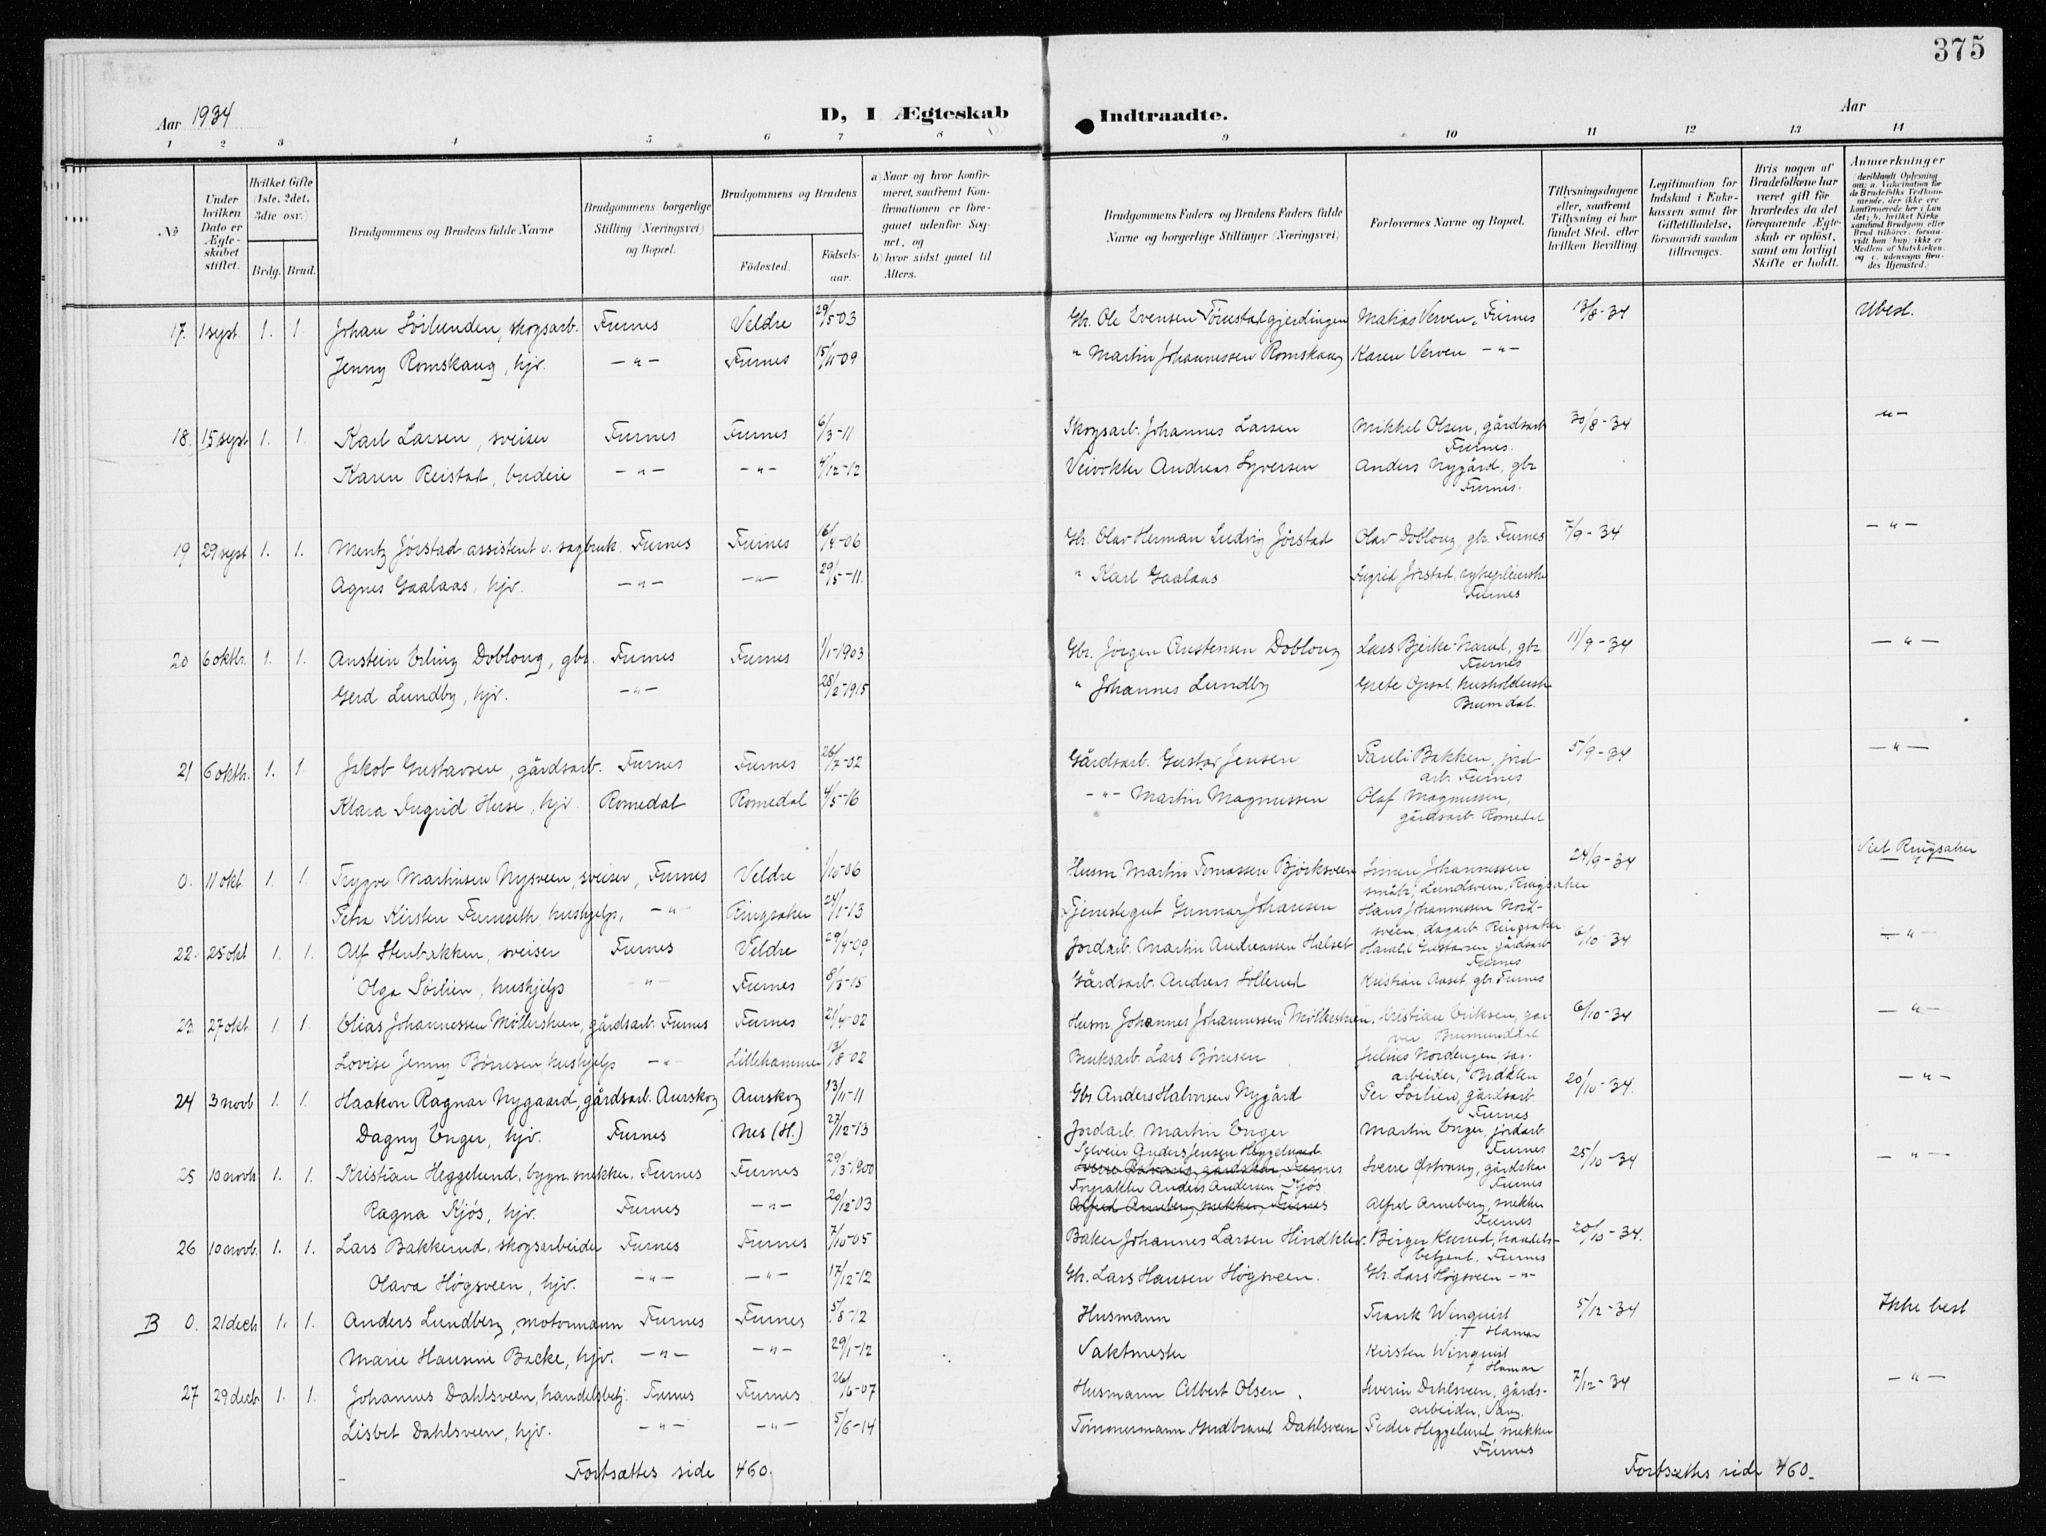 375
Aar 1934
D, I Ægteskab
Indtraadte.
Aar
1 2 3 4 5 6 7 8 9 10 11 12 13 14
No
Under hvilken Dato er Ægteskabet stiftet.
Hvilket Gifte (1ste, 2det, 3die osv.)
Brdg. Brud.
Brudgommens og Brudens fulde Navne
Brudgommens borgerlige Stilling (Næringsvei) og Bopæl.
Brudgommens og Brudens
Fødested.
Fødselsaar.
a) Naar og hvor konfirmeret, saafremt Konfirmationen er foregaaet udenfor Sognet, og
b) hvor sidst gaaet til Alters.
Brudgommens Faders og Brudens Faders fulde Navne og borgerlige Stillinger (Næringsvei)
Forlovernes Navne og Bopæl.
Tillysningsdagene eller, saafremt Tillysning ei har fundet Sted, efter hvilken Bevilling
Legitimation for Indskud i Enkekassen samt for Giftetilladelse, forsaavidt saadan tiltrænges.
Hvis nogen af Brudefolkene har været gift før hvorledes da det foregaaende Ægteskab er opløst, samt om lovligt Skifte er holdt.
Anmærkninger
17. 1 sept. 1. 1. Johan Sørlunden, skogsarb. Furnes Veldre 29/5-03 Gbr. Ole Evensen Tørrestadgjerdingen Matias Verven, Furnes 13/8-34 Ubest.
Jenny Romskaug, hjv. —"— Furnes 15/11-09 " Martin Johannessen Romskaug Karen Verven —"—
18. 15 sept 1. 1. Karl Larsen, sveiser Furnes Furnes 6/3-11 Skogsarb. Johannes Larsen Mikkel Olsen, gårdsarb 30/8-34 —"—
Furnes.
Karen Reistad, budeie —"— —"— 4/12-12 Veivokter Andreas Syversen Anders Nygård, gbr
Furnes.
19 29 sept 1. 1. Mentz Jørstad, assistent v. sagbruk Furnes Furnes 16/4-06 Gbr. Olav Herman Ludvig Jørstad Olav Doblong, gbr. Furnes 7/9-34 —"—
Agnes Gaalaas, hjv. —"— —"— 29/5-11. " Karl Gaalaas Ingrid Jørstad, sykepleierske
Furnes
20 6 oktbr. 1. 1. Anstein Erling Doblong, gbr. Furnes Furnes 1/1-1903 Gbr. Jørgen Austensen Doblong Lars Bjerke-Narud, gbr 11/9-34 —"—
Furnes
Gerd Lundby, hjv. —"— 28/2-1915 " Johannes Lundby Grete Opsal, husholderske
Brumdal.
21 6 oktbr. 1. 1. Jakob Gustavsen, gårdsarb. Furnes Furnes 26/7-02 Gårdsarb. Gustav Jensen Pauli Bakken, jord 5/9-34 —"—
arb. Furnes
Klara Ingrid Huse, hjv. Romedal Romedal 4/5-16 —"— Martin Magnussen Olaf Magnussen,
gårdsarb. Romedal
0. 11 okt 1. 1. Trygve Martinsen Nysveen, sveiser, Furnes Veldre 1/10-06 Husm. Martin Tomassen Bjørksveen Simen Johannessen 24/9-34 Viet Ringsaker
småbr. Lundsveen, Ringsaker
Petra Kirsten Furuseth hushjelp, —"— Ringsaker 24/1-13 Tjenestegut Gunnar Johansen Hans Johannessen Nord-
sveen, dagarb. Ringsaker
22. 25 okt 1. 1. Alf Stenbakken, sveiser Furnes Veldre 29/4-09 Jordarb. Martin Andreassen Halset Harald Gustavsen, gårdsarb 6/10-34 —"—
Furnes
Olga Sørlien, hushjelp —"— Furnes 8/3-15 Gårdsarb. Andreas Sollerud Kristian Aaset, gbr. Furnes
23. 27 okt 1. 1. Elias Johannessen Møllersteen, gårdsarb. Furnes Furnes 21/4-02 Husm. Johannes Johannessen Møllersteen. Kristian Eriksen, gar- 6/10-34 —"—
ver, Brumunddal
Lovise Jenny Børresen hushjelp —"— Lillehammer 13/8-02 Bruksarb. Lars Børresen Julius Nordengen, sag-
arbeider, Brddalen
24 3 novb 1. 1. Haakon Ragnar Nygaard, gårdsarb. Aurskog Aurskog 13/11-11 Gbr. Anders Halvorsen Nygård Per Sørlien, gårdsarb. 20/10-34. —"—
Furnes
Dagny Enger, hjv. Furnes Nes (H.) 27/12-13 Jordarb. Martin Enger Martin Enger, jordarb
Furnes
25 10 novb 1. 1. Kristian Heggelund, bygn.snekker, Furnes Furnes 29/3-1900 Selveier Anders Jensen Heggelund Sverre Østvang, gårdskar 25/10-34 —"—
Furnes
Ragna Kjøs, hjv. Furnes —"— 20/12-03 Forpakter Anders Andersen Kjøs Alfred Arneberg, snekker
Alfred Arneberg, snekker, Furnes
Furnes
26 10 novb. 1. 1. Lars Bakkerud, skogsarbeider Furnes Furnes 7/10-05 Baker Johannes Larsen Hindklev. Birger Kurud, handels- 20/10-34.
betjent. Furnes
Olava Høgsveen, hjv. —"— —"— 17/12-12 Gbr. Lars Hansen Høgsveen. Gbr. Lars Høgsveen —"—
B 0. 21 decb 1. 1. Anders Lundberg, motormann Furnes Furnes 5/8-12 Husmann Frank Winquist 5/12-34 Ikke best
Hamar
Marie Hansine Backe, hjv. —"— —"— 29/1-12 Vaktmester Kirsten Winquist
Hamar
27 29 decb. 1. 1. Johannes Dahlsveen, handelsbetj. Furnes Furnes 26/6-07 Husmann Albert Olsen. Severin Dahlsveen, gårds- 7/12-34 —"—
arbeider, Vang.
Lisbet Dahlsveen, hjv. —"— —"— 5/6-14 Tømmermann Gudbrand Dahlsveen Peder Heggelund, snekker
Furnes
Fortsættes side 460.
Fortsættes side 460.